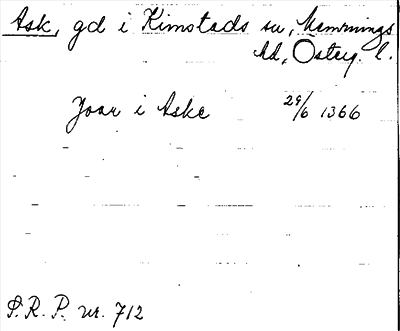 Ask, gd i Kimstads sn, Memmings
hd, Österg. l.
Joar i Aske 29/6 1366
S.R.P. nr. 712